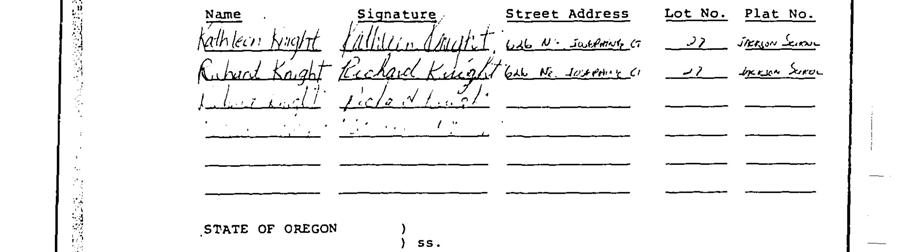 Name Signature Street Address Lot No. Plat No.
Kathleen Knight Kathleen Knight 626 NE. JOSEPHINE CT 27 JACKSON SCHOOL
Richard Knight Richard Knight 626 NE. JOSEPHINE CT 27 JACKSON SCHOOL
STATE OF OREGON )
) ss.